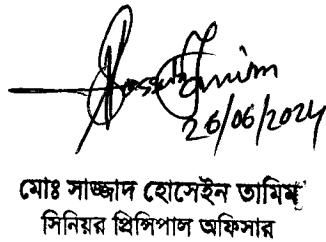 26/06/2024
মোঃ সাজ্জাদ হোসেইন তামিম
সিনিয়র প্রিন্সিপাল অফিসার